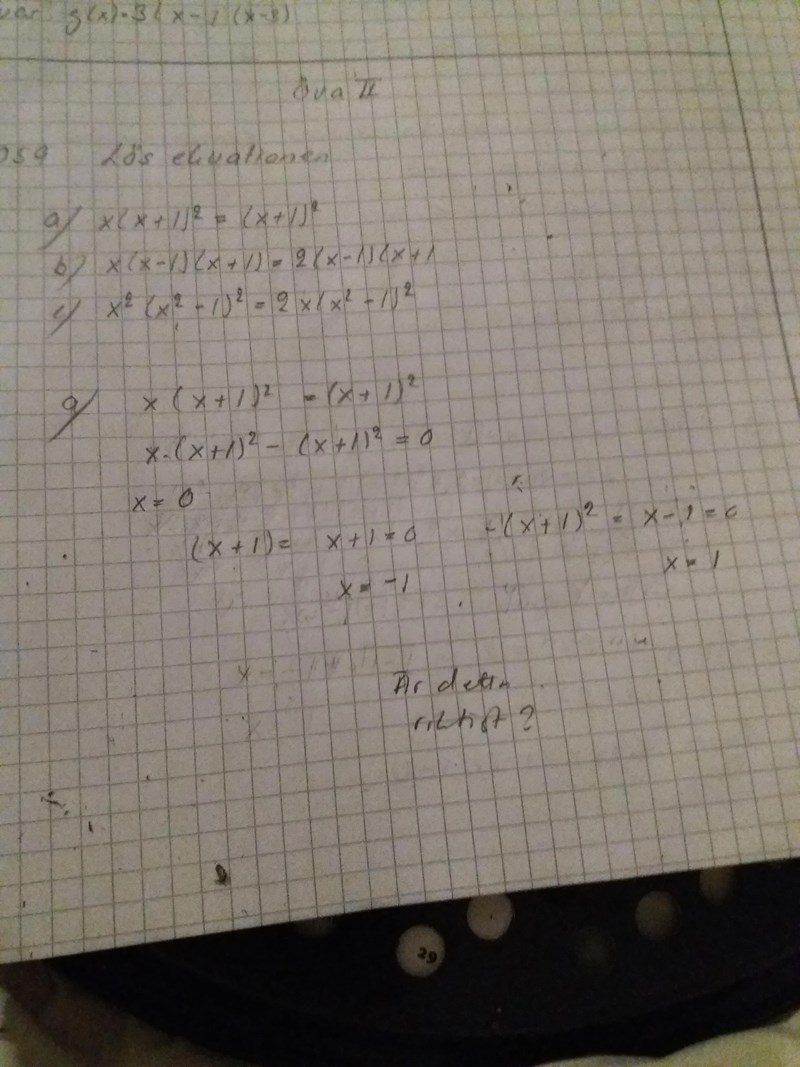 g(x)=3(x-1(x-3)
Öva II
059 Lös ekvationen
a) x(x+1)² = (x+1)²
b) x(x-1)(x+1) = 2(x-1)(x+1
c) x²(x²-1)² = 2x(x²-1)²
a) x(x+1)² = (x+1)²
x·(x+1)² - (x+1)² = 0
x = 0
(x+1) = x+1=0 -(x+1)² = x-1=0
x = -1 x = 1
Är detta
riktigt?
29